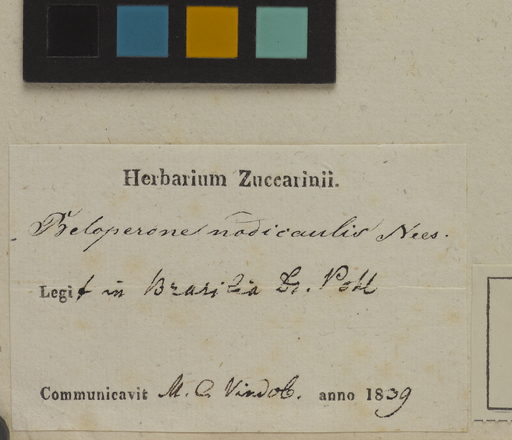 Herbarium Zuccarinii.
Beloperone nodicaulis Nees.
Legit in Brasilia Dr. Pohl
Communicavit M. C. Vindob. anno 1839